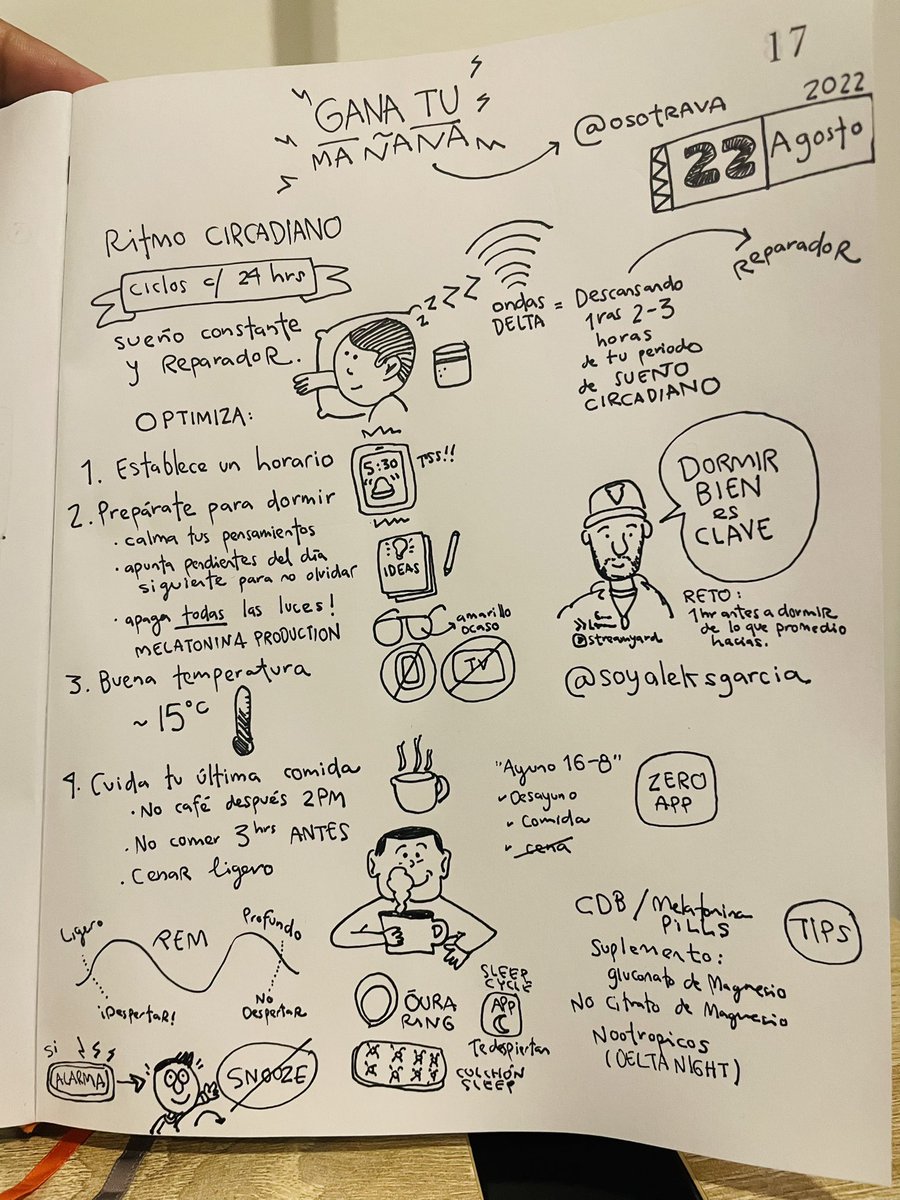 17
GANA TU
MAÑANA
@OSOTRAVA
2022
22 Agosto
Ritmo CIRCADIANO
ciclos c/ 24 hrs
sueño constante
y REPARADOR.
z z z z
ondas
DELTA
= Descansando
1ras 2-3
horas
de tu periodo
de SUEÑO
CIRCADIANO
REPARADOR
OPTIMIZA:
1. Establece un horario
5:30
TSS!!
2. Prepárate para dormir
• calma tus pensamientos
• apunta pendientes del día
siguiente para no olvidar
• apaga todas las luces!
MELATONINA PRODUCTION
IDEAS
amarillo
ocaso
TV
DORMIR
BIEN
es
CLAVE
streamyard
RETO:
1hr antes a dormir
de lo que promedio
hacías.
@soyaleksgarcia
3. Buena temperatura
~ 15°C
4. Cuida tu última comida
• No café después 2PM
• No comer 3hrs ANTES
• Cenar ligero
"Ayuno 16-8"
Desayuno
Comida
cena
ZERO
APP
Ligero
REM
Profundo
¡Despertar!
No
Despertar
Si
ALARMA
SNOOZE
ŌURA
RING
SLEEP
CYCLE
APP
Te despiertan
COLCHÓN
SLEEP
TIPS
CDB / Melatonina
PILLS
Suplemento:
gluconato de Magnesio
No Citrato de Magnesio
Nootropicos
(DELTA NIGHT)